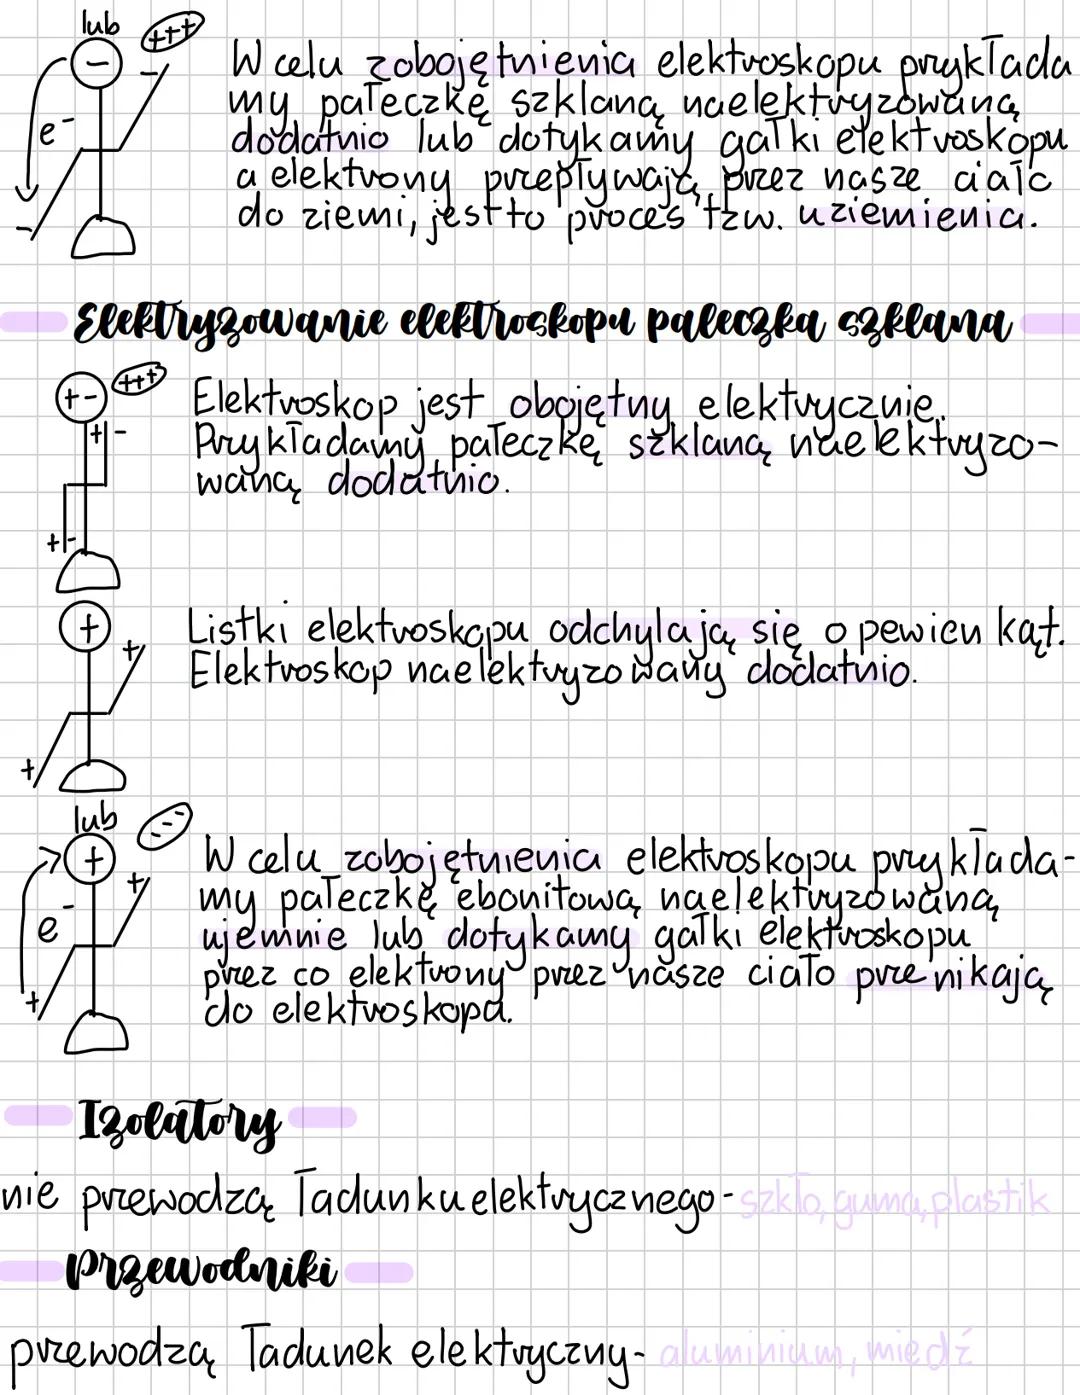 lub
+++
W celu zobojętnienia elektroskopu przykłada
my pałeczkę szklaną naelektryzowaną
e-
dodatnio lub dotykamy gałki elektroskopu
a elektrony przepływają przez nasze ciało
do ziemi, jest to proces tzw. uziemienia.
Elektryzowanie elektroskopu pałeczka szklana
+-
+++
Elektroskop jest obojętny elektrycznie.
+ -
Przykładamy pałeczkę szklaną naelektryzo-
waną dodatnio.
+ -
+
Listki elektroskopu odchylają się o pewien kąt.
+
Elektroskop naelektryzowany dodatnio.
+
lub
---
+
W celu zobojętnienia elektroskopu przykłada-
+
my pałeczkę ebonitową naelektryzowaną
e-
ujemnie lub dotykamy gałki elektroskopu
przez co elektrony przez nasze ciało przenikają
+
do elektroskopa.
Izolatory
nie przewodzą ładunku elektrycznego - szkło, guma, plastik
Przewodniki
przewodzą ładunek elektryczny - aluminium, miedź